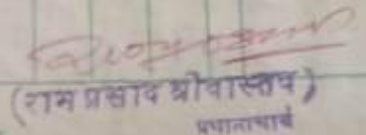 (राम प्रसाद श्रीवास्तव)
प्रधानाचार्य